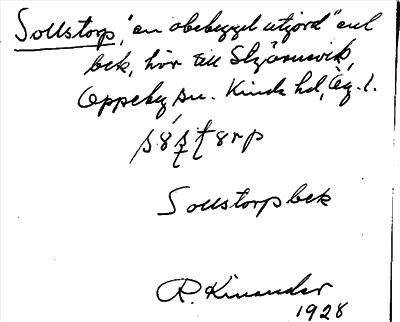 Sollstorp, "en obebyggd utjord" enl
bek, hör till Stjärnevik,
Oppeby sn. Kinds hd, Ög. l.
Sollstorp bek
R. Kinander
1928